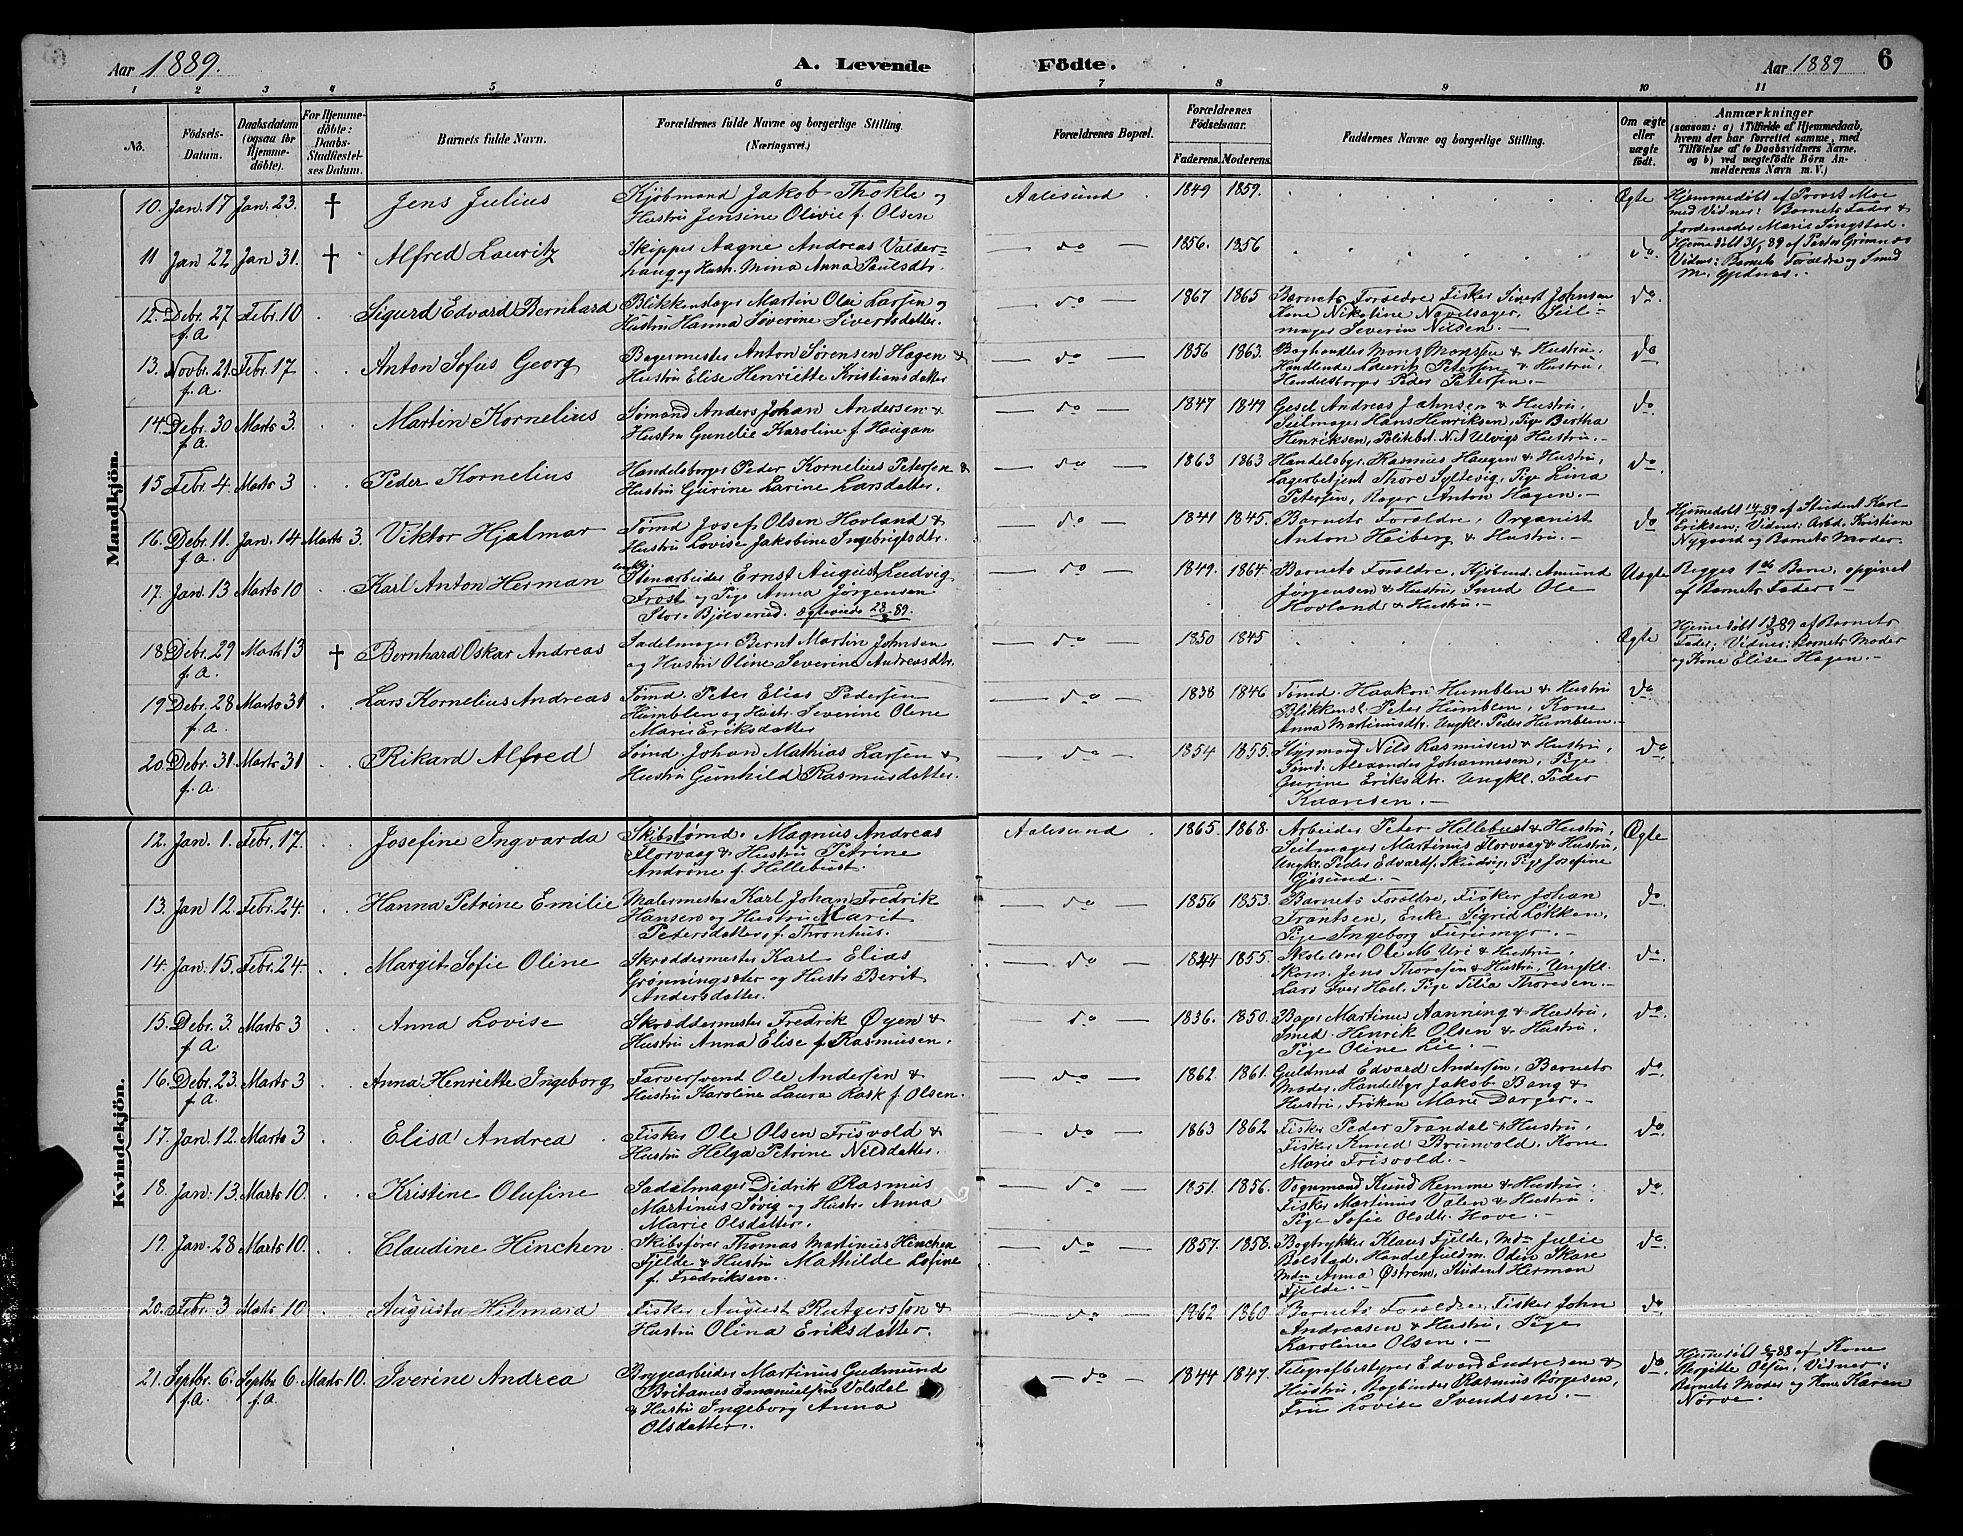 Aar 1889.
A. Levende Födte.
Aar 1889
6
1 2 3 4 5 6 7 8 9 10 11
No.
Födsels-Datum.
Daabsdatum (ogsaa för Hjemme-döbte).
For Hjemme-döbte: Daabs-Stadfæstel-ses Datum.
Barnets fulde Navn.
Forældrenes fulde Navne og borgerlige Stilling. (Næringsvei.)
Forældrenes Bopæl.
Forældrenes Födselsaar.
Faderens. Moderens.
Faddernes Navne og borgerlige Stilling.
Om ægte eller uægte födt.
Anmærkninger
(saasom: a) i Tilfælde af Hjemmedaab,
hvem der har forrettet samme, med
Tilföielse af to Daabsvidners Navne,
og b) ved uægtefödte Börn An-
melderens Navn m. V.)
Mandkjön.
10. Jan. 17 Jan. 23. † Jens Julius
Kjøbmand Jakob Thokle og
Hustru Jensine Olivie f. Olsen
Aalesund. 1849 1859. Ægte
Hjemmedøbt af Provst Moe
med Vidner: Barnets Fader &
Jordemoder Marie Singstad.
11 Jan 22 Jan 31. † Alfred Lauritz
Skipper Aagne Andreas Valder-
haug og Hustr. Mina Anna Paulsdtr.
do 1856. 1856 do.
Hjemmedøbt 31/1 89 af Pastor Grimnæs
Vidner: Barnets Forældre og Smed
M. Gjednæs.-
12. Debr. 27 f.A. Febr. 10 Sigurd Edvard Bernhard
Blikkenslager Martin Olai Larsen og
Hustru Hanna Severine Sivertsdatter.
do 1867 1865
Barnets Forældre, Fisker Sivert Johnsen
Kone Nikoline Navelsager, Seil-
mager Severin Nilsen.-
do.
13. Novbr. 21. f.A. Febr. 17 Anton Sofus Georg
Bagermester Anton Sørensen Hagen &
Hustru Elise Henriette Kristiansdatter
do 1856 1863.
Boghandler Mons Monssen & Hustru,
Handlende Lauritz Petersen & Hustru,
Handelsborger Peder Petersen.-
do
14 Debr. 30 f.A. Marts 3. Martin Kornelius
Sømand Anders Johan Andersen &
Hustru Gundie Karoline f. Haugan
do 1847 1849
Gesel Andreas Jahnsen & Hustru,
Seilmager Hans Henriksen, Pige Bertha
Henriksen, Politibet. Nil Ulvigs Hustru.-
do
15 Febr. 4. Marts 3 Peder Kornelius
Handelsborger Peder Kornelius Petersen &
Hustru Gurine Larine Larsdatter.
do 1863 1863
Handelsbgr. Rasmus Haugen & Hustru,
Lagerbetjent Thore Syltevig, Pige Lina
Petersen, Bager Anton Hagen.-
do.
16. Debr. 11. f.A. Jan. 14 Marts 3. Viktor Hjalmar
Tømd Josef Olsen Hovland &
Hustru Lovise Jakobine Ingebrigtsdtr.
do 1841 1845.
Barnets Forældre, Organist
Anton Heiberg & Hustru.-
do
Hjemmedøbt 14/1 89 af Student Karl
Eriksen; Vidner: Arbd. Kristian
Nygaard og Barnets Moder.
17. Jan. 13 Marts 10 Karl Anton Herman
Stenarbeider Ernst August Ludvig
Frost og Pige Anna Jørgensen
Store Bjölverud.
do 1849. 1864.
Barnets Forældre, Kjøbmd. Amund
Jørgensen & Hustru, Smed Ole
Hovland & Hustru.-
Uægte
Begges 1ste Barn, opgivet
af Barnets Fader.-
18 Debr. 29 f.A. Marts 13 † Bernhard Oskar Andreas
Sadelmager Bernt Martin Johnsen
og Hustru Oline Severine Andreasdtr.
do 1850 1845 Ægte
Hjemmedøbt 13/3 89 af Barnets
Fader; Vidner: Barnets Moder
og Kone Elise Hagen.-
19 Debr. 28 f.A. Marts 31 Lars Kornelius Andreas
Tømd. Peter Elias Pedersen
Humblen og Hustr. Severine Olene
Marie Eriksdatter
do 1838 1846
Tømd. Haakon Humblen & Hustru
Blikkensl. Peter Humblen, Kone
Anna Martinusdtr. Ungkl. Peder Humblen.-
do
20. Debr. 31 f.A. Marts 31 Rikard Alfred
Sømd. Johan Mathias Larsen &
Hustru Gunhild Rasmusdatter.
do 1854 1855.
Styrmand Nils Rasmussen & Hustru,
Tømd. Alexander Johannesen, Pige
Gurine Eriksdtr. Ungkl. Peder
Knarvsen.-
do
Kvindekjön.
12. Jan. 1. Febr. 17. Josefine Ingvarda
Skibstømd. Magnus Andreas
Florvaag & Hustru Petrine
Andrine f. Hellebust.
Aalesund. 1865. 1868.
Arbeider Peter Hellebust & Hustru,
Seilmager Martinus Florvaag & Hustru,
Ungkl. Peder Edvards. Skudvig, Pige Josefine
Gjøsund.-
Ægte
13. Jan 12. Febr. 24. Hanna Petrine Emilie
Malermester Karl Johan Fredrik
Hansen og Hustru Marit
Petersdatter, f. Thronhus.
do 1856 1853.
Barnets Forældre, Fisker Johan
Frantsen, Enke Sigrid Løkken,
Pige Ingeborg Furumyr.-
do.
14. Jan. 15. Febr. 24. Margit Sofie Oline
Skræddermester Karl Elias
Grønningsæter og Hustr. Berit
Andersdatter.
do 1844 1855.
Skolelær. Ole M. Uri & Hustru,
Skom. Jens Thoresen & Hustru, Ungkl.
Lars Iver Hoel, Pige Tilia Thoresen.-
do.
15. Debr. 3. f.A. Marts 3 Anna Lovise
Skræddermester Fredrik Øyen &
Hustru Anna Elise f. Rasmusen.
do 1836. 1850.
Bager Martinus Aanning & Hustru,
Smed Henrik Olsen & Hustru,
Pige Oline Lie.-
do.
16. Debr. 23. f.A. Marts 3 Anna Henriette Ingeborg
Farversvend Ole Andersen &
Hustru Karoline Laura Rask f. Olsen.
do 1862. 1861.
Guldmed Edvard Andersen, Barnets
Moder, Handelsbgr Jakob Bang &
Hustru, Frøken Marie Dorger.-
do.
17. Jan 12. Marts 3 Elisa Andrea
Fisker Ole Olsen Frisvold &
Hustru Helga Petrine Nilsdatter.
do 1863 1862
Fisker Peder Trandal & Hustru,
Fisker Knud Brunvold, Kone
Marie Frisvold.-
do
18. Jan. 13. Marts 10. Kristine Olufine
Sadelmager Didrik Rasmus
Martinus Søvig og Hustr. Anna
Marie Olsdatter.
do 1851. 1856.
Vognmand Knud Remme & Hustru,
Fisker Martinus Valen & Hustru,
Pige Sofie Olsdtr. Hove.-
do
19. Jan. 28 Marts 10. Claudine Hinchen.
Skibsfører Thomas Martinus Hinchen
Fjelde & Hustru Mathilde Lofine
f. Fredriksen.
do 1857. 1858.
Bogtrykker Klaus Fjelde, Mdm Julie
Bolstad, Handelsfuldm. Oden Skare
Mdm Anna Østrem, Student Herman
Fjelde.-
do.
20. Febr. 3 Marts 10 Augusta Hilmara
Fisker August Rutgersson &
Hustru Olina Eriksdatter.
do 1862 1860
Barnets Forældre, Fisker John
Andreasen & Hustru, Pige
Karoline Olsen.-
do
21. Septbr. 6. f.A. Septbr 6. f.A. Marts 10. Iverine Andrea
Byggearbeider Martinus Gudmund
Britanus Emanuelsen Volsdal
& Hustru Ingeborg Anna
Olsdatter.
do 1844 1847.
Telegrafbestyrer Edvard Endresen &
Hustru, Bogbinder Rasmus Børgesen,
Fru Lovise Svendsen.-
do
Hjemmedøbt 6/9 88 af Kone
Birgitte Olsen, Vidner:
Barnets Moder og Kone Karen
Nörve.